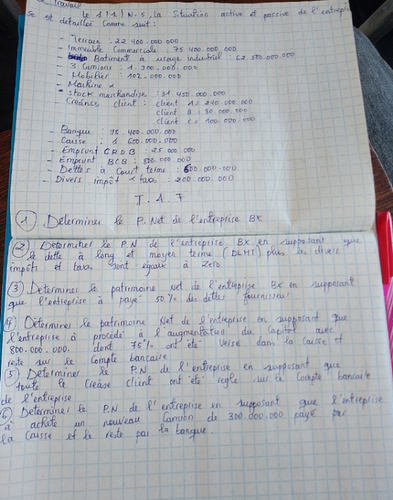 Travail
le 1/1/N-5, la Situation active et passive de l'entreprise
Se est detaillée Comme suit :
- Terrain : 22 400.000.000
- immeuble Commerciale : 75 400.000.000
- Batiment à usage industriel : 62.500.000.000
- 3 Camions : 1.300.000.000
- Mobilier : 102.000.000
- Machine
- Stock marchandise : 31.450.000.000
- Créance client : client A : 240.000.000
client B : 30.000.000
client C : 100.000.000
- Banque : 98.400.000.000
- Caisse : 1 600.000.000
- Emprunt CRDB : 25 000.000
- Emprunt BCB : 500.000.000
- Dettes à Court terme : 600.000.000
- Divers impôt & taxes : 200.000.000
T.A.F
① Déterminer le P.Net de l'entreprise Bx
② Determiner le P.N de l'entreprise Bx en supposant que
la dette à long et moyen terme (DLMT) plus les divers
impôts et taxes sont égaux à Zero.
③ Determiner le patrimoine net de l'entreprise Bx en supposant
que l'entreprise à payé 50% des dettes fournisseur
④ Déterminer le patrimoine Net de l'entreprise en supposant que
l'entreprise à procédé à l'augmentation du Capital avec
800.000.000. dont 75% ont été versé dans la Caisse et
reste sur le Compte bancaire
⑤ Determiner le P.N de l'entreprise en supposant que
toute le Créase client ont été reglé sur le Compte bancaire
de l'entreprise
⑥ Determiner le P.N de l'entreprise en supposant que l'entreprise
à achète un nouveau Camion de 300.000.000 payé par
la Caisse et le reste par la banque.